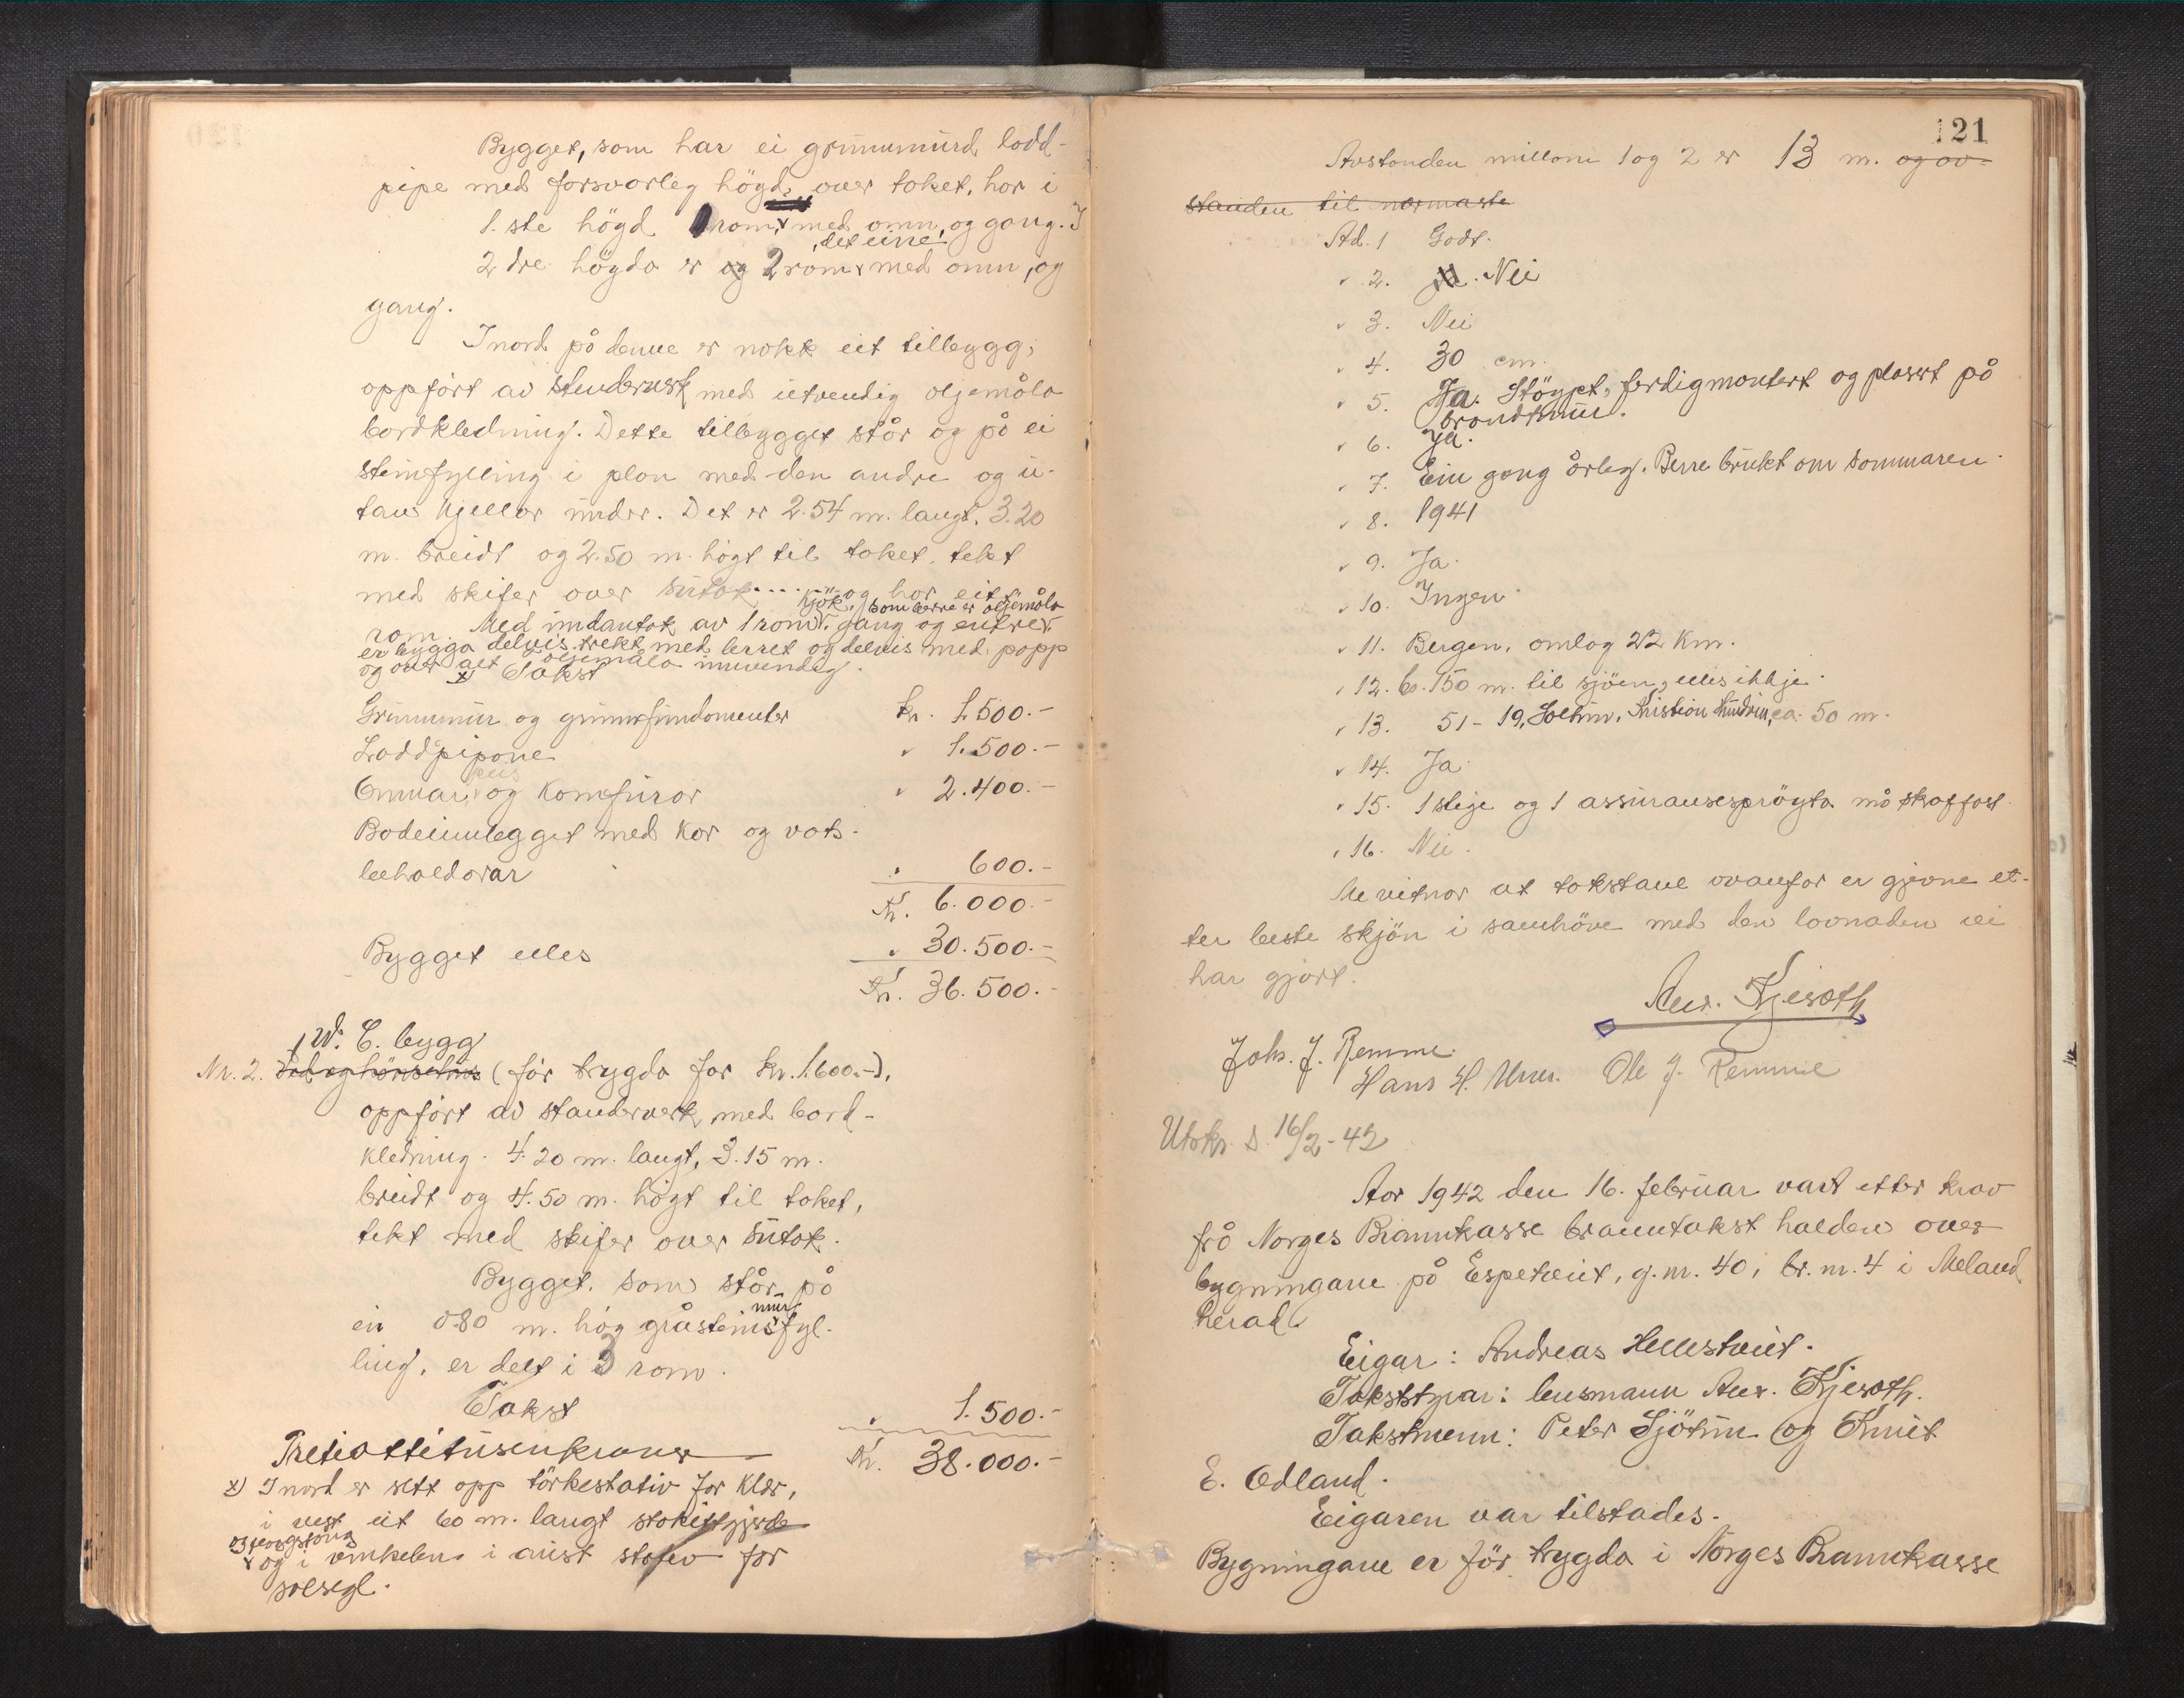 Bygget, som har ei grunnmurd lodd-
pipe med forsvorleg högd over taket, har i
1. ste högd rom med omn, og gang. I
, det eine,
2 dre högda er og 2 rom med omn, og
gang.
I nord på denne er nokk eit tilbygg,
oppfört av stenderverk med utvendig oljemåla
bordkledning. Dette tilbygget står og på ei
steinfylling i plan med den andre og u-
tan kjellar under. Det er 2.54 m. langt, 3.20
m. breidt og 2.50 m. högt til taket, tekt
med skifer over sutak .... og har eit
kjök, som berre er oljemåla
rom. Med undantak av 1 rom gang og entre
er bygga delvis trekt med lerret og delvis med papp
og over alt oljemåla innvendig.
x) Takst
Grunnmur og grunnfundamenter kr. 1.500.-
Loddpipone " 1.500.-
peis
Omnar og komfuror " 2.400.-
Badeinnlegget med kar og vats-
behaldarar " 600.-
Kr. 6.000.-
Bygget elles " 30.500.-
Kr. 36.500.-
W. C. bygg
Nr. 2. Ved og hönsehus (för trygda for kr. 1.600.-),
oppfört av standerverk med bord-
kledning. 4.20 m. langt, 3.15 m.
breidt og 4.50 m. högt til taket,
tekt med skifer over sutak.
Bygget, som står på
mur
ei 0.80 m. hög gråsteinsfyl-
ling, er delt i 3 rom.
Takst " 1.500.-
Trettiåttitusenkroner Kr. 38.000.-
x) I nord er sett opp törkestativ for klær,
i vest eit 60 m. langt stakittgjerde
og flaggstong
og i vinkelen i aust stofev for
solsegl.
121
Avstanden millom 1 og 2 er 13 m. og av-
standen til nærmaste
Ad. 1 Godt.
" 2. Ja. Nei
" 3. Nei
" 4. 30 cm.
" 5. Ja. Stöypt, ferdigmontert og plassert på
brandmur.
" 6. Ja.
" 7. Ein gong årleg. Berre brukt om sommaren.
" 8. 1941
" 9. Ja.
" 10. Ingen.
" 11. Bergen, omlag 22 km.
" 12. Co. 150 m. til sjöen, elles ikkje.
" 13. 51-19, Soltun, Kristian Hundrin, ca. 50 m.
" 14. Ja.
" 15. 1 stige og 1 assuransespröyta må skaffast.
" 16. Nei.
Me vitnar at takstane ovanfor er gjevne et-
ter beste skjön i samhöve med den lovnaden vi
har gjort.
Aur. Kjeroth
Johs. J. Remme.
Hans H. Urun. Ole J. Remme
Utskr. d. 16/2-42
Aar 1942 den 16. februar vart etter krav
frå Norges Brannkasse branntakst halden over
bygningane på Espetveit, g.nr. 40, br.nr. 4 i Meland
herad.
Eigar: Andreas Hellestveit.
Takststyrar: lensmann Aur. Kjeroth.
Takstmenn: Peter Sjötun og Knut
E. Odland.
Eigaren var tilstades.
Bygningane er för trygda i Norges Brannkasse